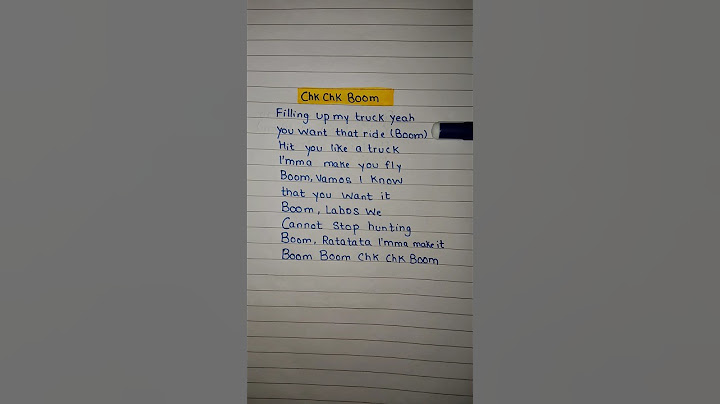 Chk Chk Boom
Filling up my truck yeah
you want that ride (Boom)
Hit you like a truck
I'mma make you fly
Boom, Vamos I know
that you want it
Boom, Labos we
Cannot stop hunting
Boom, Ratatata I'mma make it
Boom Boom Chk Chk Boom